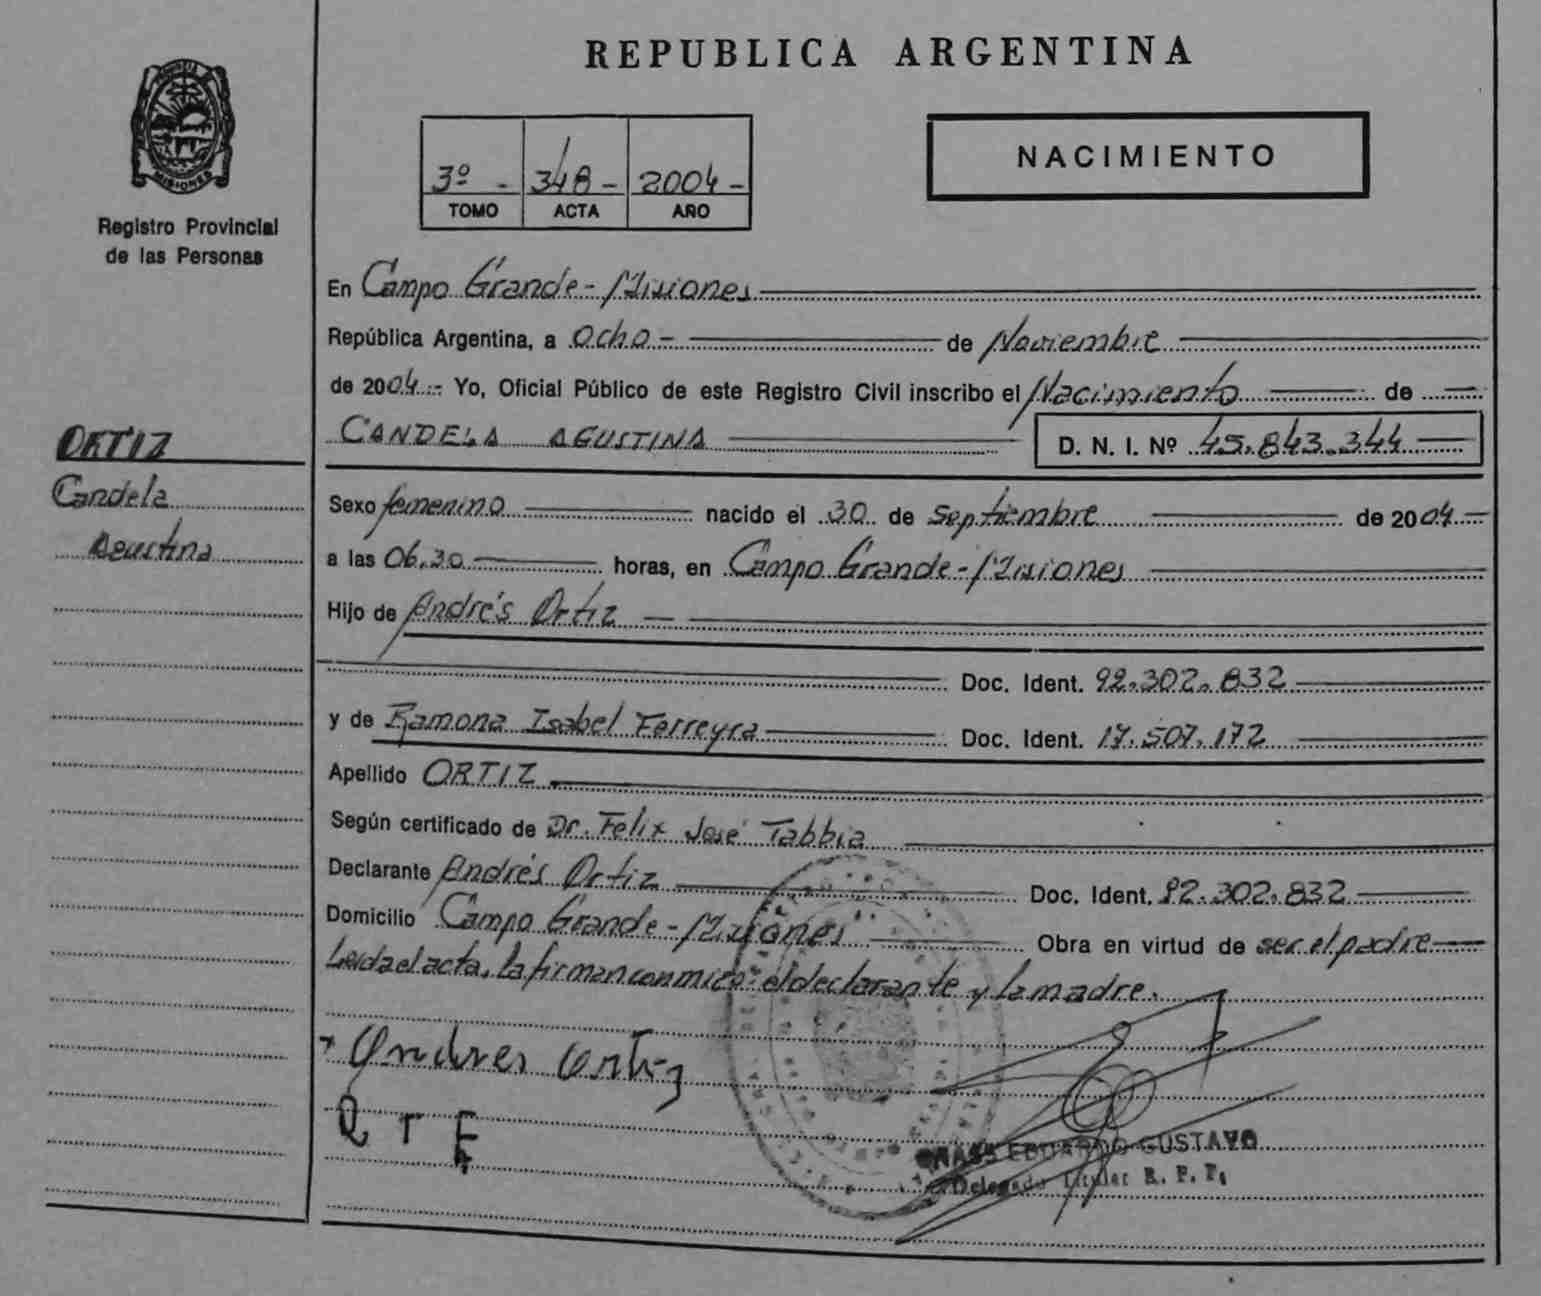 REPUBLICA ARGENTINA
MISIONES
Registro Provincial
de las Personas
3º - 348 - 2004 -
TOMO ACTA AÑO
NACIMIENTO
En Campo Grande - Misiones
República Argentina, a Ocho - de Noviembre
de 2004.- Yo, Oficial Público de este Registro Civil inscribo el Nacimiento de
CANDELA AGUSTINA D. N. I. Nº 45.843.344
ORTIZ
Candela
Agustina
Sexo femenino nacido el 30 de Septiembre de 2004
a las 06,30 horas, en Campo Grande - Misiones
Hijo de Andrés Ortiz
Doc. Ident. 92.302.832
y de Ramona Isabel Ferreyra Doc. Ident. 17.507.172
Apellido ORTIZ
Según certificado de Dr. Felix José Tabbia
Declarante Andrés Ortiz Doc. Ident. 92.302.832
Domicilio Campo Grande - Misiones Obra en virtud de ser el padre
Leida el acta, la firman conmigo: el declarante y la madre.
Andres Ortiz
R I F
EDUARDO GUSTAVO
Delegado Titular R. P. P.